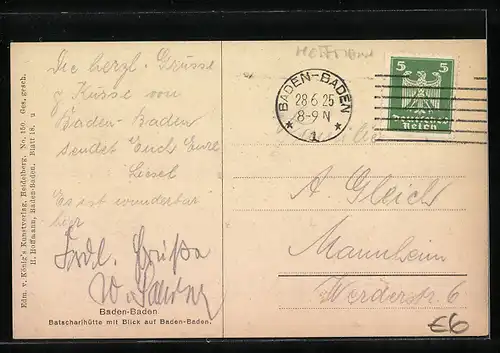 Die herzl. Grüsse
g Küsse von
Baden-Baden
sendet Euch Eure
Liesel
Es ist wunderbar
hier
Frdl. Grüße
Baden-Baden
Batscharihütte mit Blick auf Baden-Baden.
Edm. v. König's Kunstverlag, Heidelberg. No. 150 Ges. gesch.
H. Hoffmann, Baden-Baden. Blatt 18. u
BADEN-BADEN
28.6.25
8-9 N
* 1 *
5 5
Deutsches
Reich
A. Gleich
Mannheim
Werderstr. 6
£6